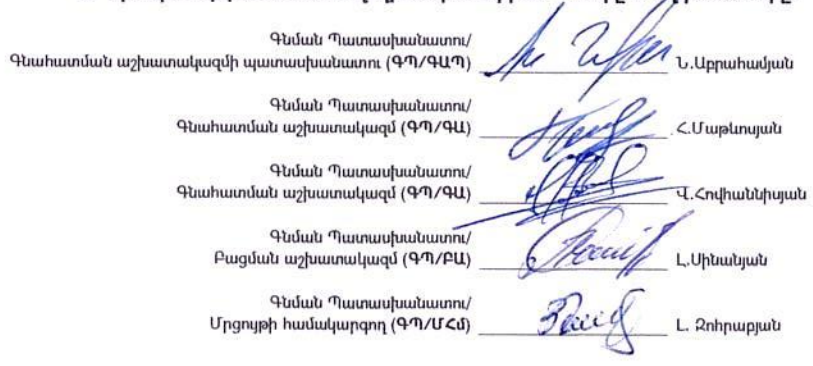 Գնման Պատասխանատու/
Գնահատման աշխատակազմի պատասխանատու (ԳՊ/ԳԱՊ) Ն.Աբրահամյան
Գնման Պատասխանատու/
Գնահատման աշխատակազմ (ԳՊ/ԳԱ) Հ.Մաթևոսյան
Գնման Պատասխանատու/
Գնահատման աշխատակազմ (ԳՊ/ԳԱ) Վ.Հովհաննիսյան
Գնման Պատասխանատու/
Բացման աշխատակազմ (ԳՊ/ԲԱ) Լ.Սինանյան
Գնման Պատասխանատու/
Մրցույթի համակարգող (ԳՊ/ՄՀմ) Լ. Զոհրաբյան